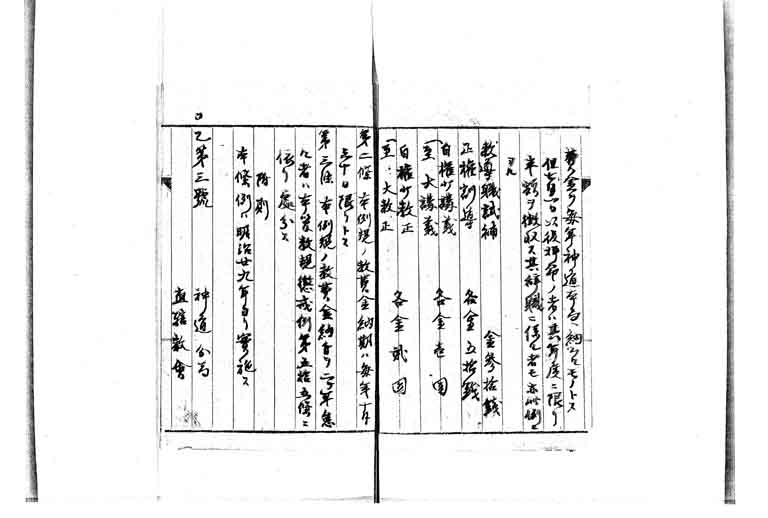 費金ヲ毎年神道本局ニ納ムルモノトス
但七月一日以後拝命ノ者ハ其年度ニ限リ
半額ヲ徴収ス其辞職ニ係ル者モ亦此例ニ
ヨル
教導職試補 金参拾銭
正権訓導 各金五拾銭
自権少講義
至大講義 各金壱円
自権少教正
至大教正 各金貳円
第二條 本例規ノ教費金納期ハ毎年十月
三十日限リトス
第三條 本例規ノ教費金納付ヲ二ケ年怠
ル者ハ本管教規懲戒例第五拾五條ニ
依リ處分ス
附則
本條例ハ明治廿九年ヨリ實施ス
乙第三號
神道分局
直轄教會